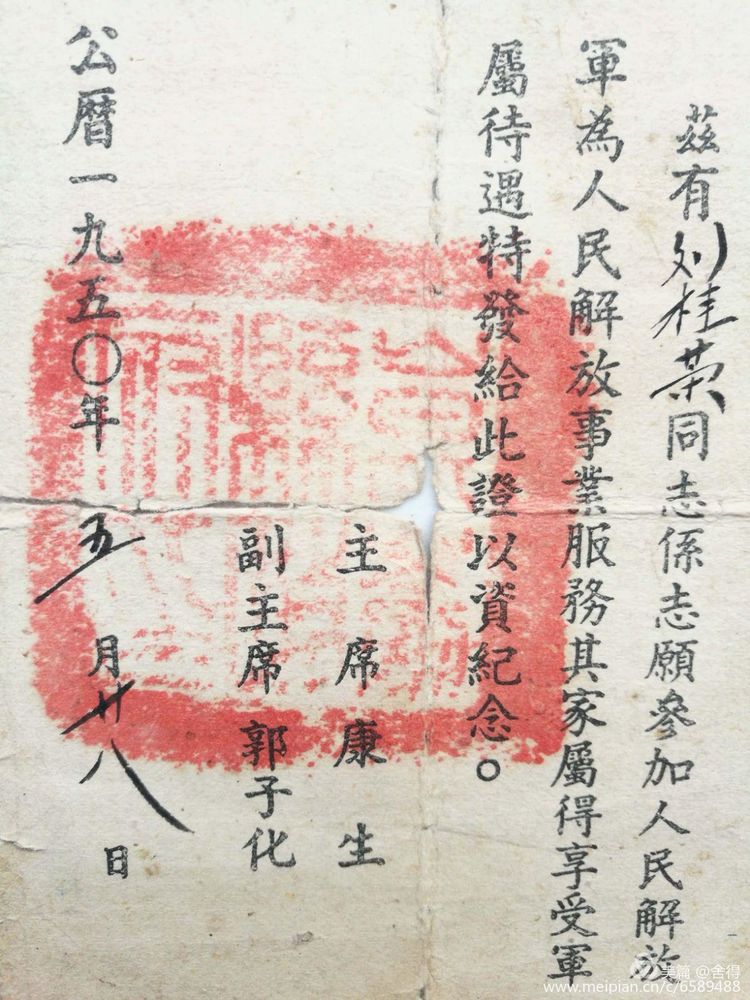 茲有刘桂荣同志係志願參加人民解放
軍為人民解放事業服務其家屬得享受軍
屬待遇特發給此證以資紀念。
主席康生
副主席郭子化
公曆一九五〇年五月廿八日
美篇 @舍得
www.meipian.cn/c/6589488